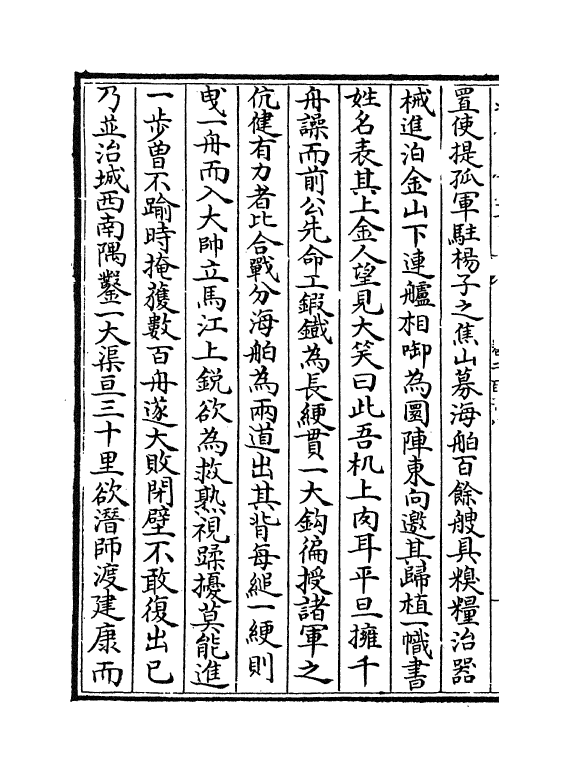 置使提孤軍駐楊子之焦山募海舶百餘艘具糗糧治器
械進泊金山下連艫相啣為圜陣東向邀其歸植一幟書
姓名表其上金人望見大笑曰此吾机上肉耳平旦擁千
舟譟而前公先命工鍛鐡為長綆貫一大鈎徧授諸軍之
伉健有力者比合戰分海舶為兩道出其背每縋一綆則
曵一舟而入大帥立馬江上鋭欲為救熟視蹂擾莫能進
一步曽不踰時掩獲數百舟遂大敗閉壁不敢復出已
乃並治城西南隅鑿一大渠亘三十里欲潛師渡建康而